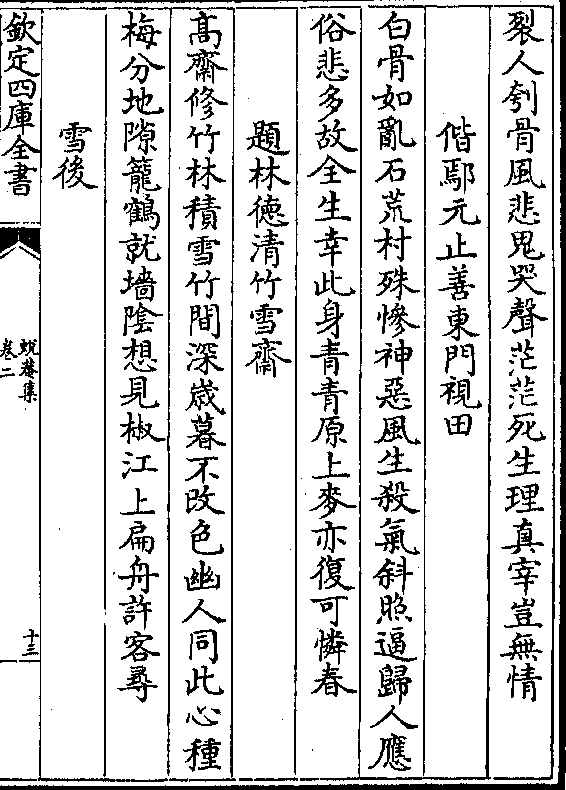 裂人刳骨風悲鬼哭聲茫茫死生理真宰豈無情
偕鄢元止善東門視田
白骨如亂石荒村殊慘神惡風生殺氣斜照逼歸人應
俗悲多故全生幸此身青青原上麥亦復可憐春
題林徳清竹雪齋
髙齋修竹林積雪竹間深嵗暮不改色幽人同此心種
梅分地隙籠鶴就墻陰想見椒江上扁舟許客尋
雪後
欽定四庫全書
蛻菴集
卷二
十三